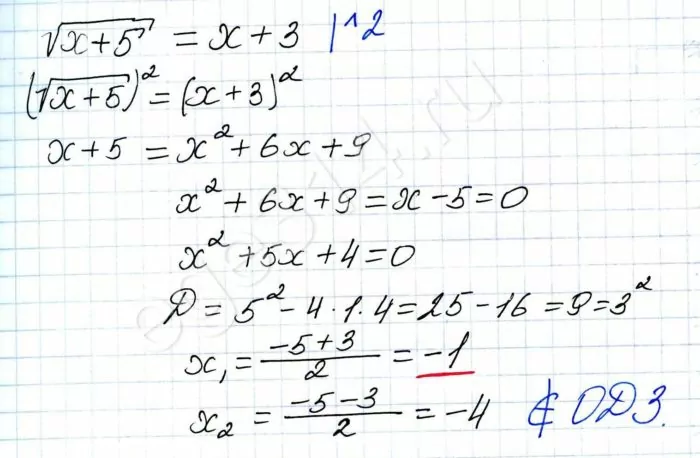 √x+5 = x+3 |^2
(√x+5)² = (x+3)²
x+5 = x²+6x+9
x²+6x+9=x-5=0
x²+5x+4=0
D = 5²-4·1·4=25-16=9=3²
x₁ = (-5+3)/2 = -1
x₂ = (-5-3)/2 = -4 ∉ ОДЗ.